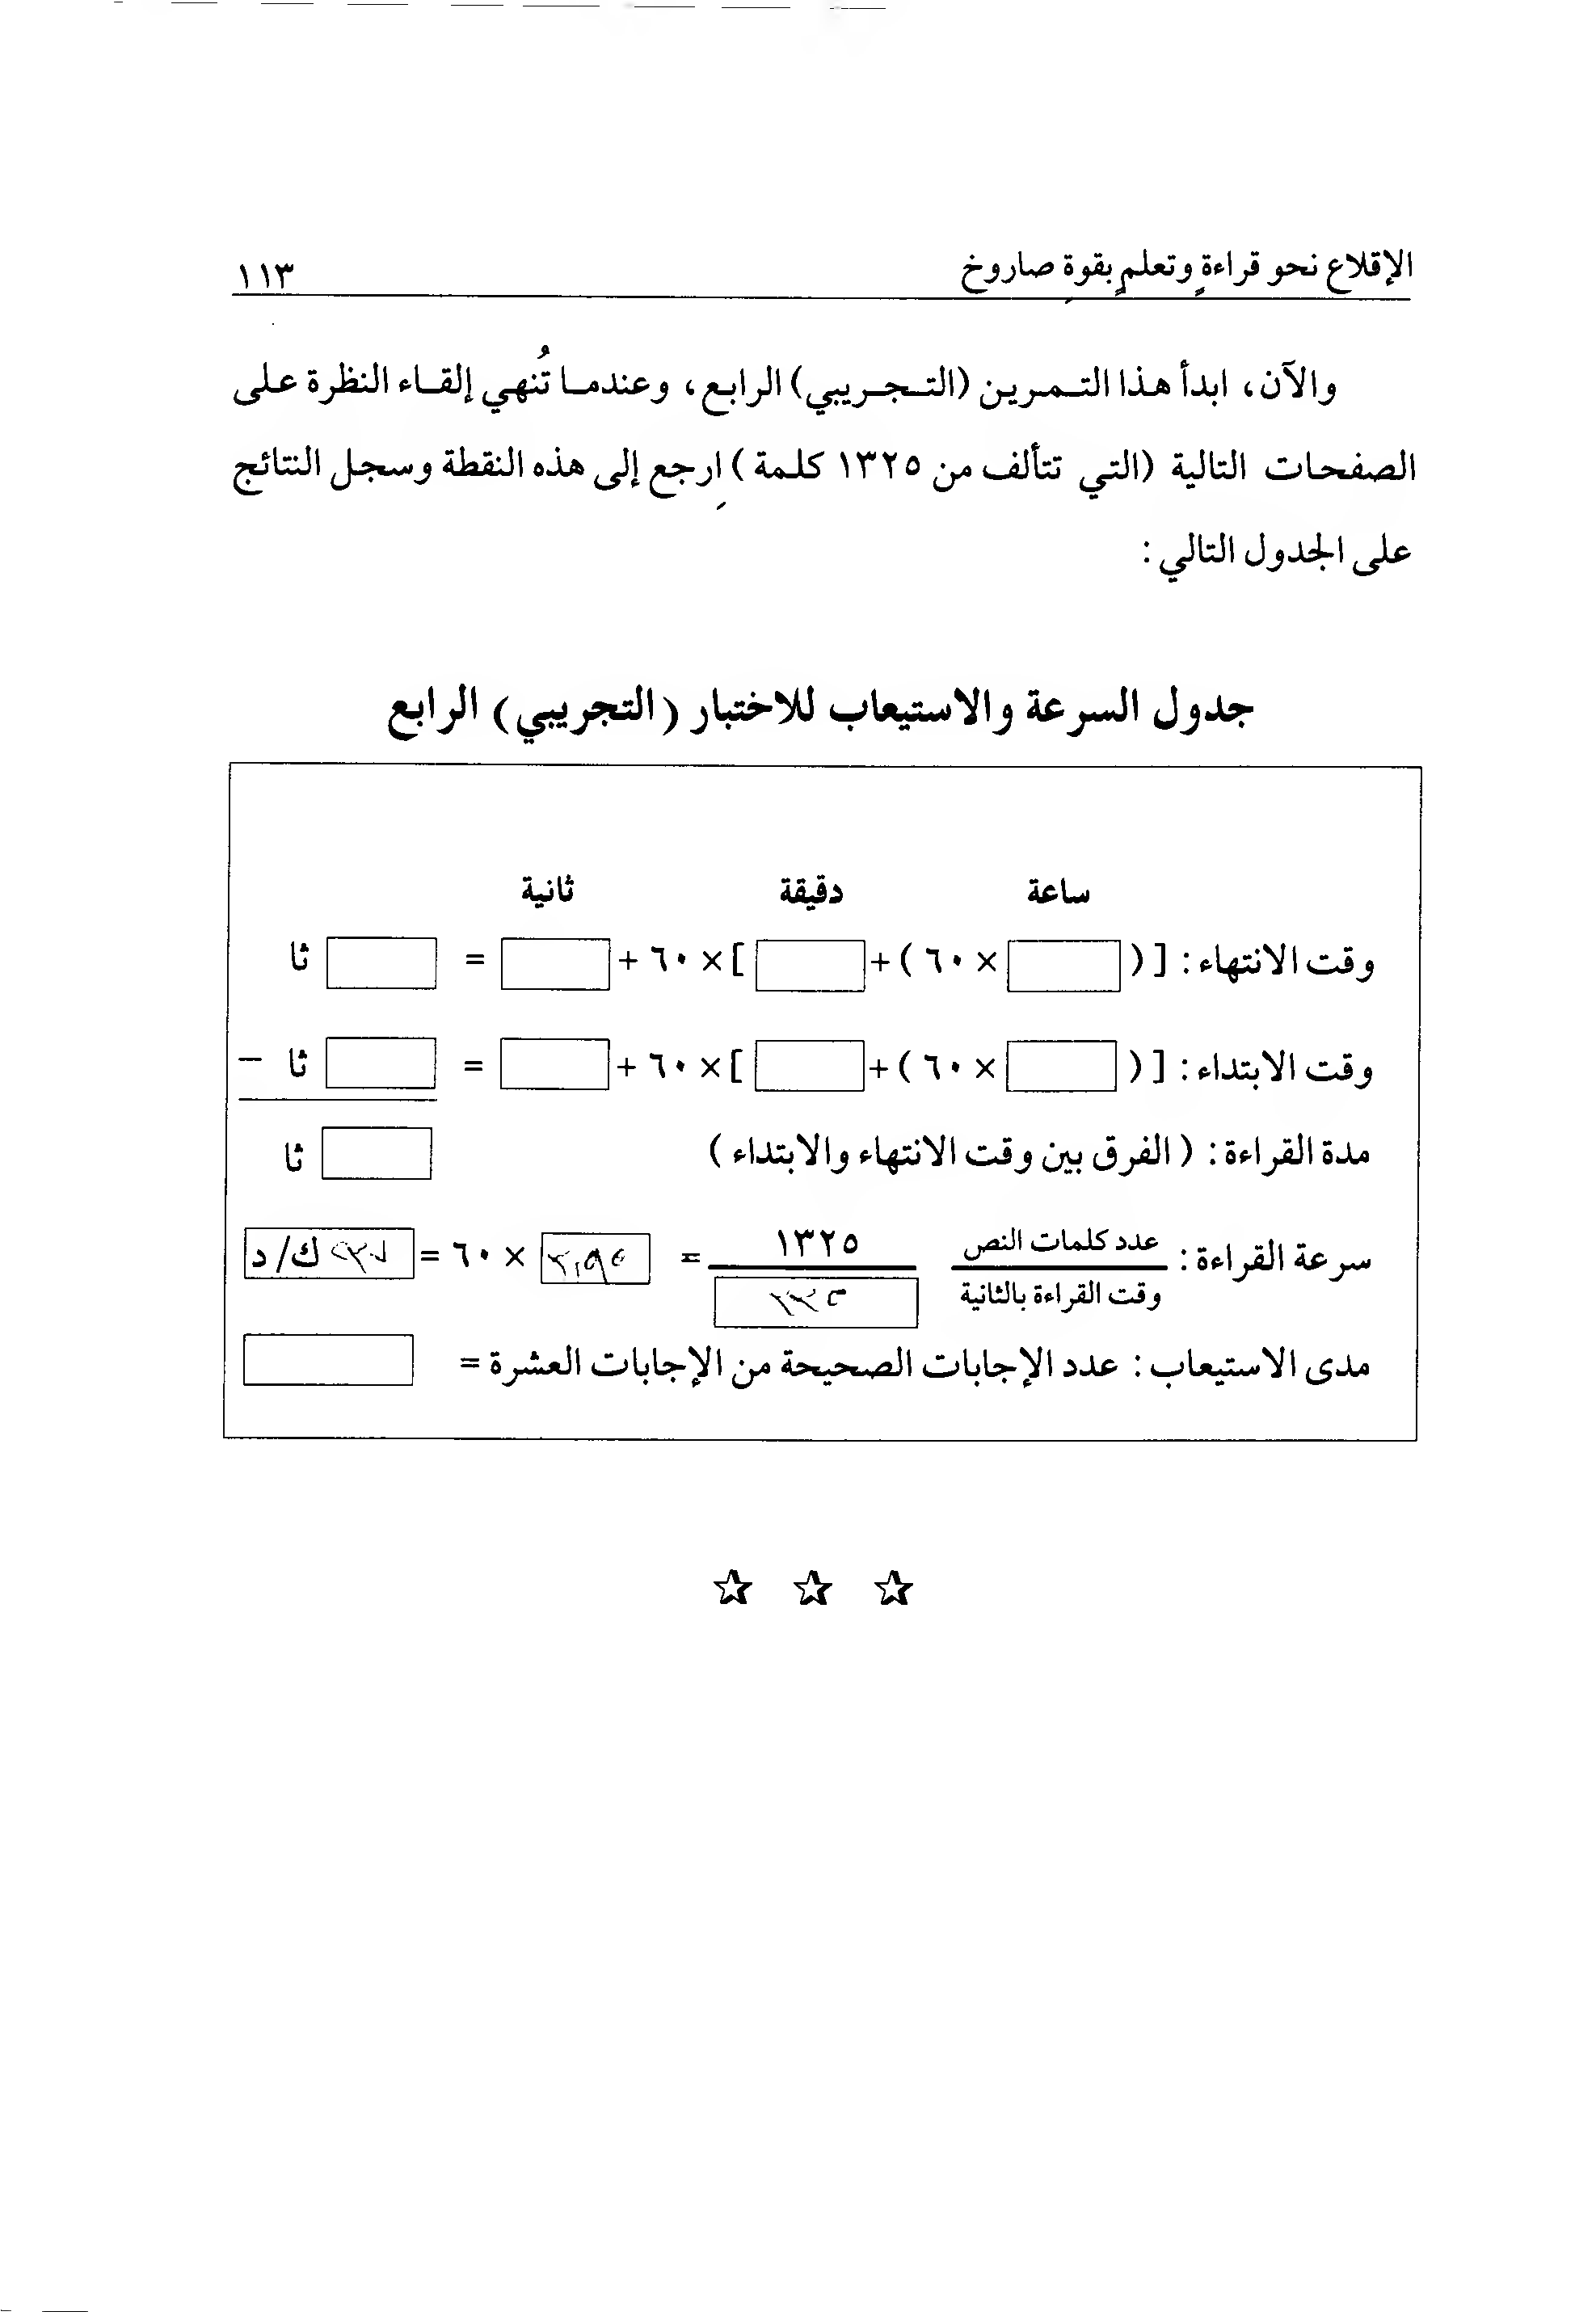 الإقلاع نحو قراءةٍ وتعلمٍ بقوةِ صاروخ ١١٣
والآن، ابدأ هذا التمرين (التجريبي) الرابع، وعندما تُنهي إلقاء النظرة على
الصفحات التالية (التي تتألف من ١٣٢٥ كلمة) اِرجع إلى هذه النقطة وسجل النتائج
على الجدول التالي:
جدول السرعة والاستيعاب للاختبار (التجريبي) الرابع
ساعة دقيقة ثانية
وقت الانتهاء: [( × ٦٠) + ] × ٦٠ + = ثا
وقت الابتداء: [( × ٦٠) + ] × ٦٠ + = ثا −
مدة القراءة: (الفرق بين وقت الانتهاء والابتداء) ثا
سرعة القراءة: عدد كلمات النص ١٣٢٥ = × ٦٠ = ك/د
وقت القراءة بالثانية
مدى الاستيعاب: عدد الإجابات الصحيحة من الإجابات العشرة =